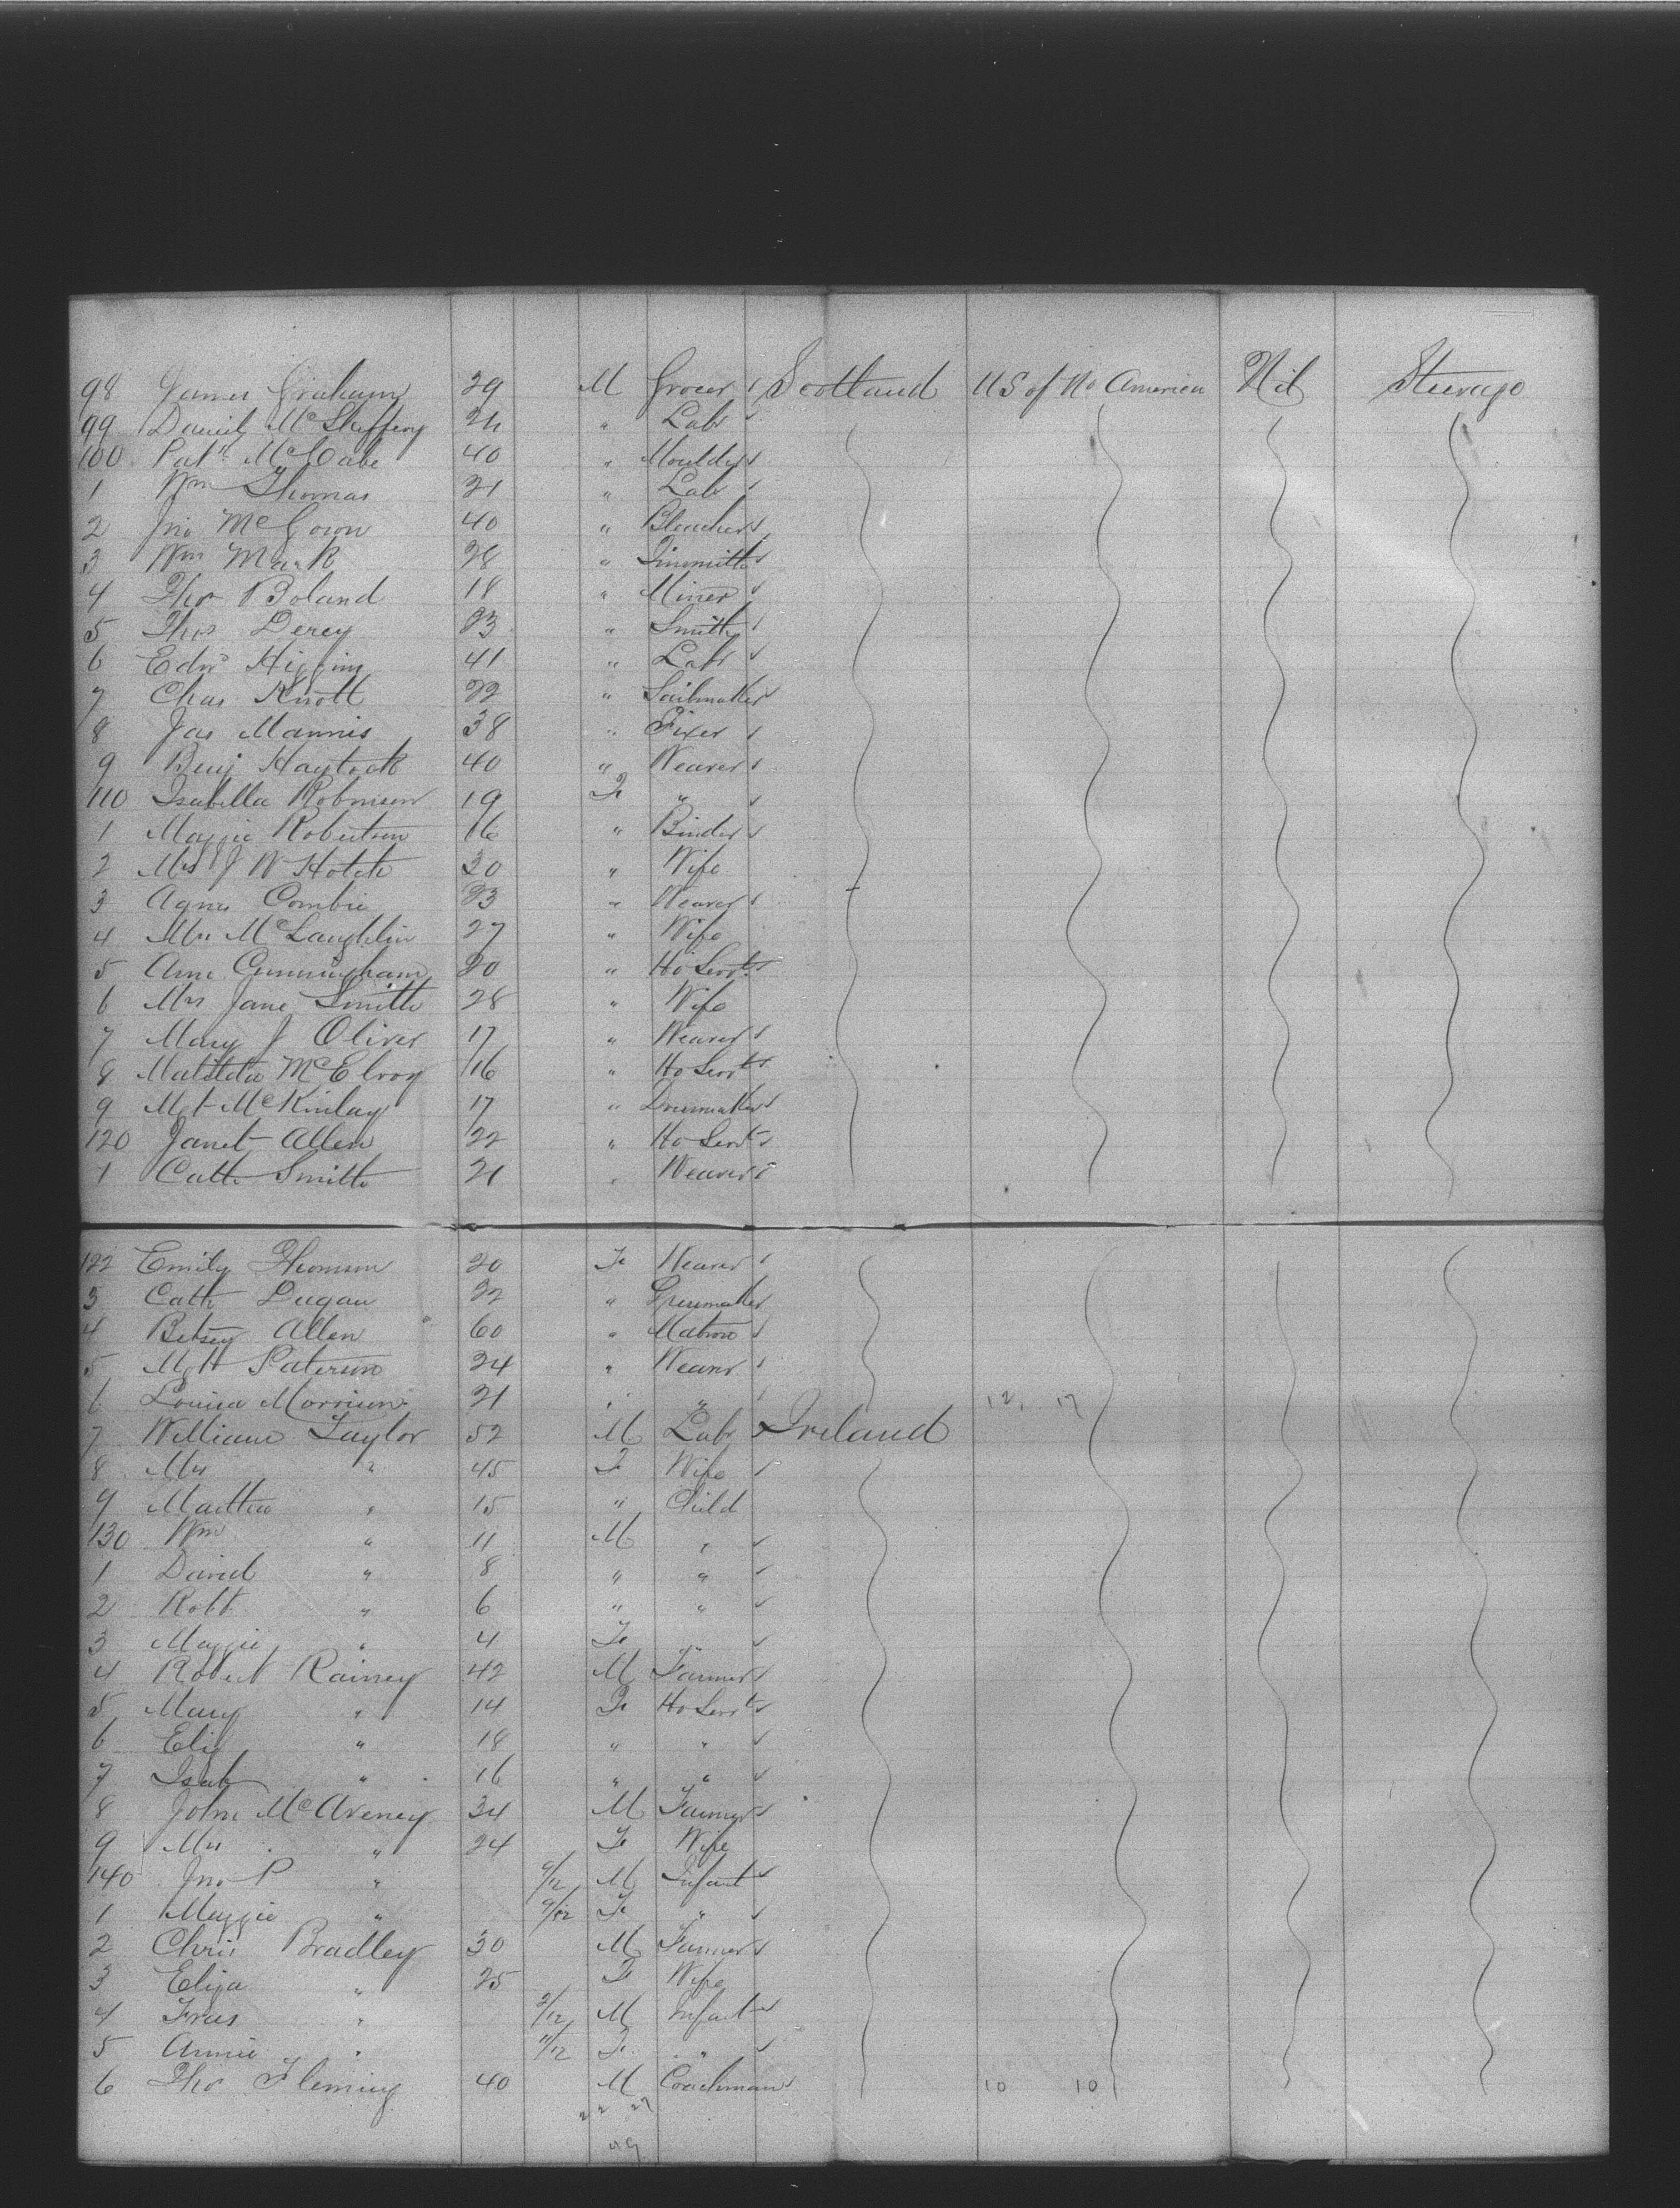 98 James Graham 29 M Grocer Scotland US of No America Nil Steerage
99 Daniel McSheffery 24 " Labr
100 Patk McCabe 40 " Moulder
1 Wm Thomas 21 " Labr
2 Jno McGown 40 " Bleacher
3 Wm Mack 28 " Tinsmith
4 Thos Boland 18 " Miner
5 Thos Derey 23 " Smith
6 Edwd Higgins 41 " Labr
7 Chas Knott 22 " Sailmaker
8 Jas Mannis 38 " Fixer
9 Benj 40 " Weaver
110 Isabella Robinson 19 Fe "
1 Maggie Robertson 16 " Binder
2 Mrs J W Hotch 30 " Wife
3 Agnes Combie 23 " Weaver
4 Mrs McLaughlin 27 " Wife
5 Ann Cunningham 20 " Ho Servt
6 Mrs Jane Smith 28 " Wife
7 Mary J Oliver 17 " Weaver
8 Matilda McElroy 16 " Ho Servt
9 Mgt McKinlay 17 " Dressmaker
120 Janet Allen 22 " Ho Servt
1 Cath Smith 21 " Weaver
122 Emily Thomson 20 Fe Weaver
3 Cath Dugan 22 " Dressmaker
4 Betsey Allen 60 " Matron
5 Mgt Paterson 24 " Weaver
6 Louisa Morrison 21 " " 12, 17
7 William Taylor 52 M Labr Ireland
8 Mrs " 45 Fe Wife
9 Martha " 15 " Child
130 Wm " 11 M "
1 David " 8 " "
2 Robt " 6 " "
3 Maggie " 4 Fe "
4 Robert Rainey 42 M Farmer
5 Mary " 14 Fe Ho Servt
6 Eliz " 18 " "
7 Isab " 16 " "
8 John McAveney 34 M Farmer
9 Mrs " 24 Fe Wife
140 Jno P " 9/12 M Infant
1 Maggie " 9/12 Fe "
2 Chris Bradley 30 M Farmer
3 Eliza " 25 Fe Wife
4 Fras " 2/12 M Infant
5 Annie " 11/12 Fe "
6 Thos Fleming 40 M Coachman 10 10
22 27
49